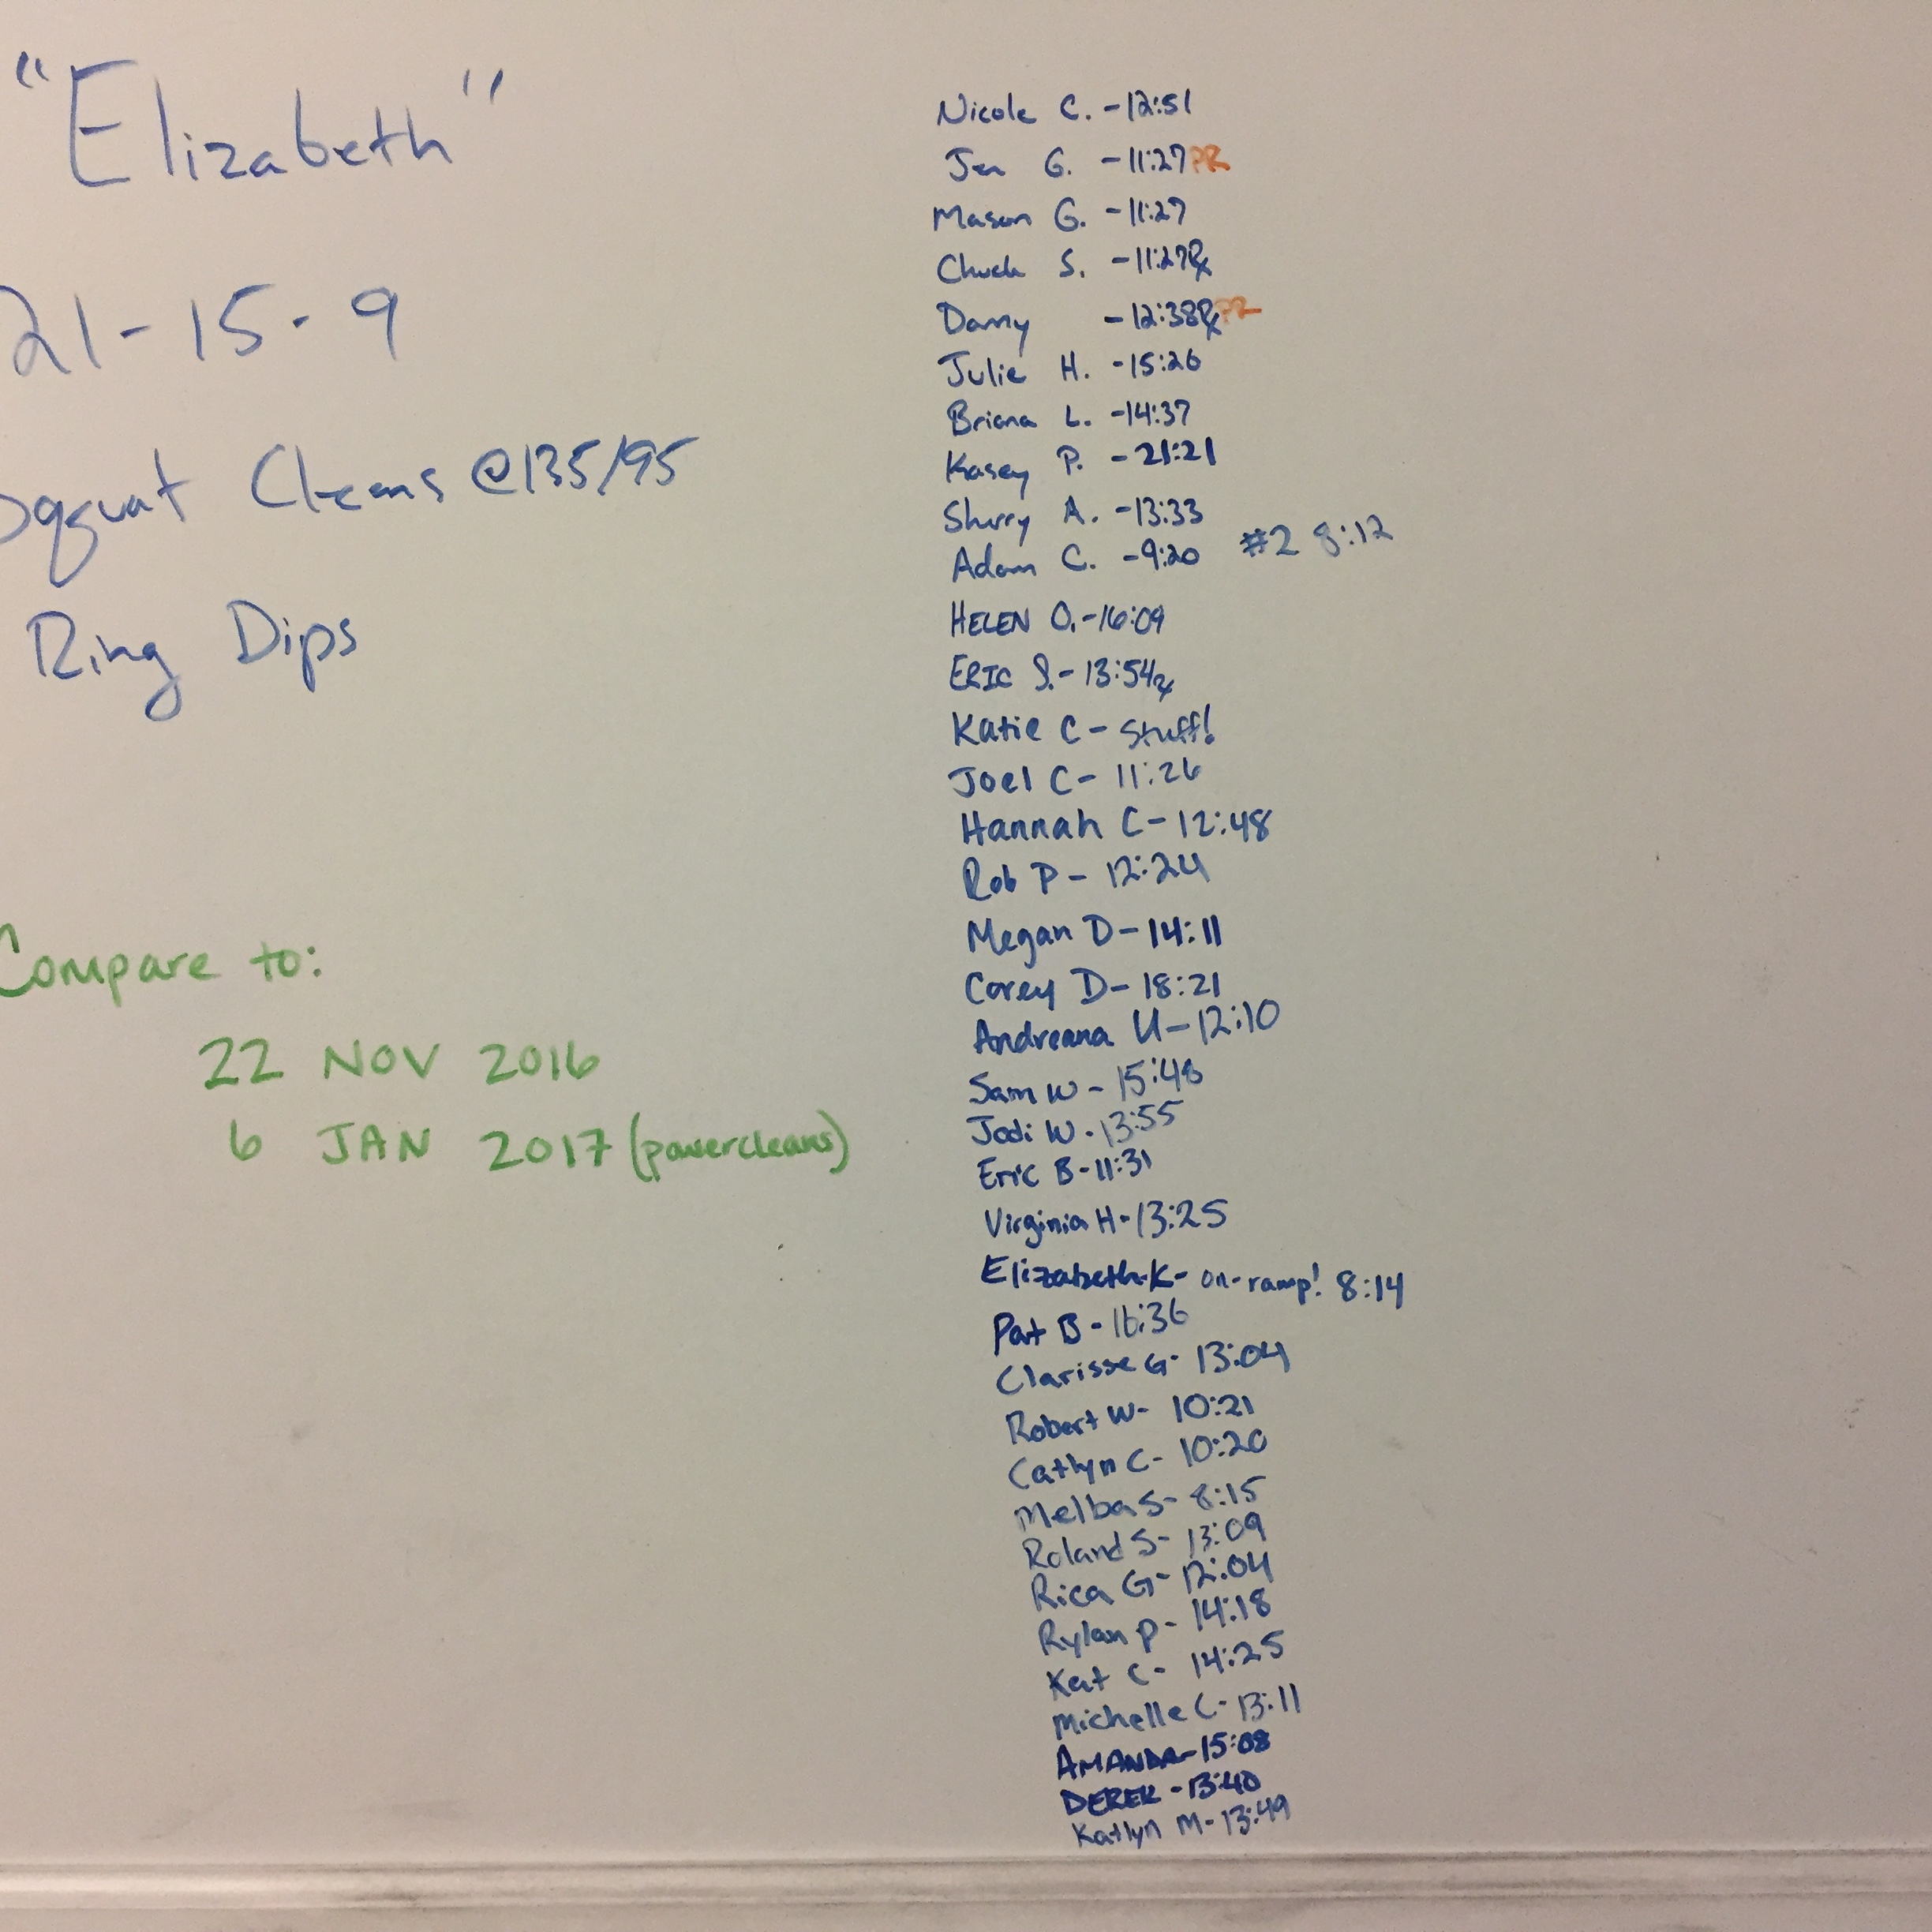 "Elizabeth"
21-15-9
Sqquat Cleans @135/95
Ring Dips
Compare to:
22 NOV 2016
6 JAN 2017 (powercleans)
Nicole C. - 12:51
Jen G. - 11:27 PR
Mason G. - 11:27
Chuck S. - 11:27 Rx
Danny - 12:38 Rx PR
Julie H. - 15:26
Briana L. - 14:37
Kasey P. - 21:21
Sherry A. - 13:33
Adam C. - 9:20 #2 8:12
HELEN O. - 16:09
ERIC S. - 13:54 Rx
Katie C - Stuff!
Joel C - 11:26
Hannah C - 12:48
Rob P - 12:24
Megan D - 14:11
Corey D - 18:21
Andreana U - 12:10
Sam W - 15:48
Jodi W - 13:55
Eric B - 11:31
Virginia H - 13:25
Elizabeth K - on-ramp! 8:14
Pat B - 16:36
Clarisse G - 13:04
Robert W - 10:21
Catlyn C - 10:20
Melba S - 8:15
Roland S - 13:09
Rica G - 12:04
Rylan P - 14:18
Kat C - 14:25
Michelle C - 13:11
AMANDA - 15:08
DEREK - 13:40
Katlyn M - 13:49